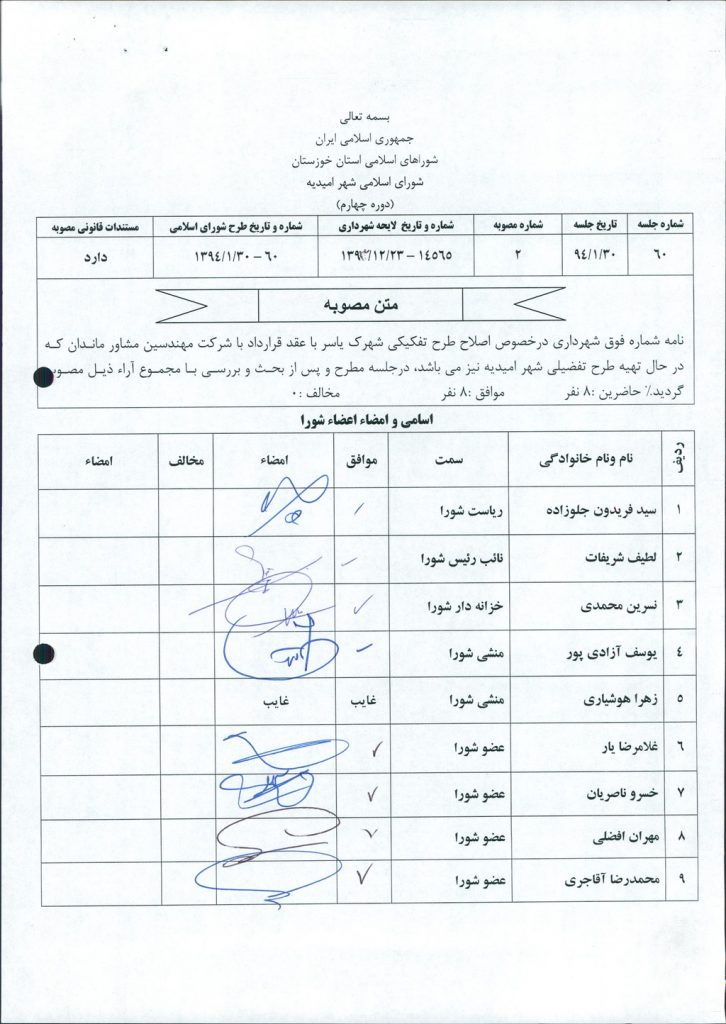 بسمه تعالی
جمهوری اسلامی ایران
شوراهای اسلامی استان خوزستان
شورای اسلامی شهر امیدیه
(دوره چهارم)
شماره جلسه تاریخ جلسه شماره مصوبه شماره و تاریخ لایحه شهرداری شماره و تاریخ طرح شورای اسلامی مستندات قانونی مصوبه
۶۰ ۹۴/۱/۳۰ ۲ ۱۴۵۶۵ - ۱۳۹۳/۱۲/۲۳ ۶۰ - ۱۳۹۴/۱/۳۰ دارد
متن مصوبه
نامه شماره فوق شهرداری درخصوص اصلاح طرح تفکیکی شهرک یاسر با عقد قرارداد با شرکت مهندسین مشاور ماندان که
در حال تهیه طرح تفضیلی شهر امیدیه نیز می باشد، درجلسه مطرح و پس از بحث و بررسی با مجموع آراء ذیل مصوب
گردید.٪ حاضرین :۸ نفر موافق :۸ نفر مخالف :۰
اسامی و امضاء اعضاء شورا
ردیف نام ونام خانوادگی سمت موافق امضاء مخالف امضاء
۱ سید فریدون جلوزاده ریاست شورا
۲ لطیف شریفات نائب رئیس شورا
۳ نسرین محمدی خزانه دار شورا
۴ یوسف آزادی پور منشی شورا
۵ زهرا هوشیاری منشی شورا غایب غایب
۶ غلامرضا یار عضو شورا
۷ خسرو ناصریان عضو شورا
۸ مهران افضلی عضو شورا
۹ محمدرضا آقاجری عضو شورا